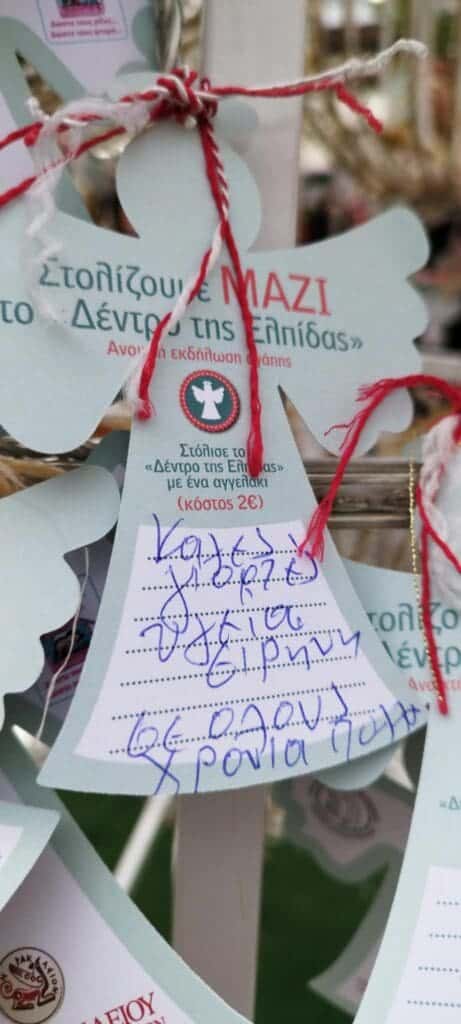 Στολίζουμε ΜΑΖΙ
το «Δέντρο της Ελπίδας»
Ανοιχτή εκδήλωση αγάπης
Στόλισε το
«Δέντρο της Ελπίδας»
με ένα αγγελάκι
(κόστος 2€)
Καλες
γιορτες
υγεια
ειρηνη
σε ολους
χρονια πολλα